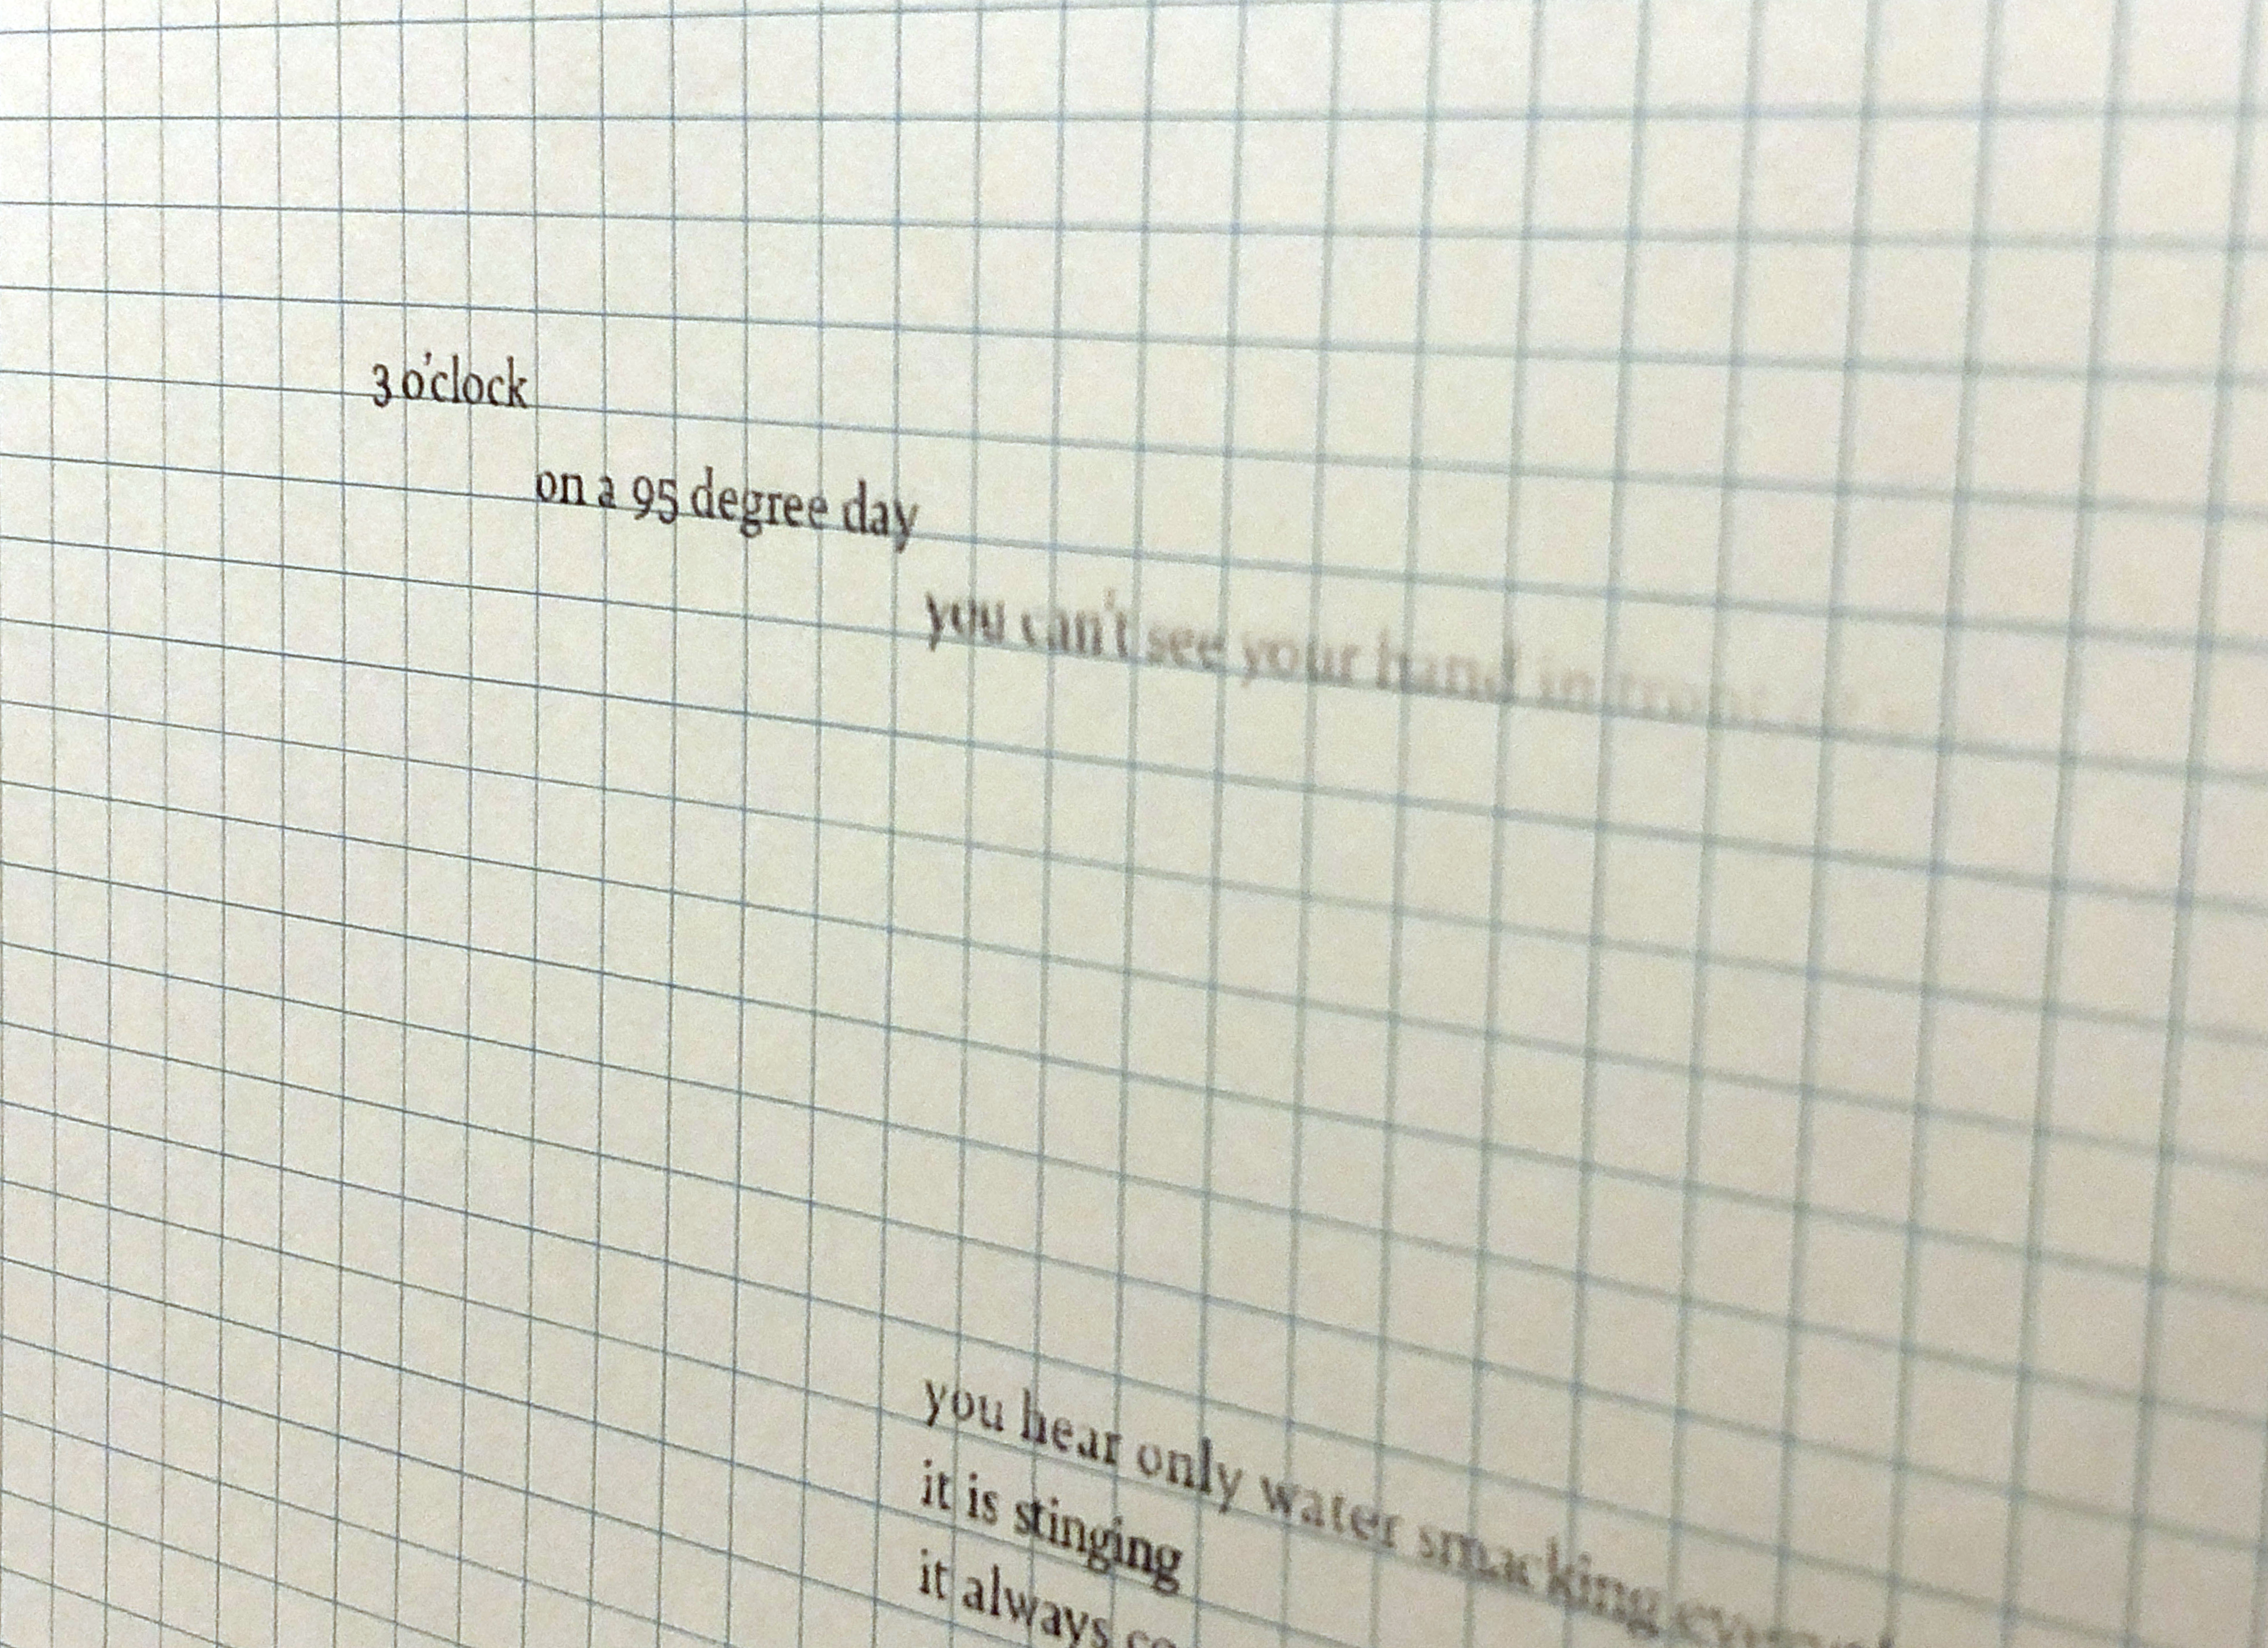 3 o'clock
on a 95 degree day
you can't see your hand in front of
you hear only water smacking
it is stinging
it always